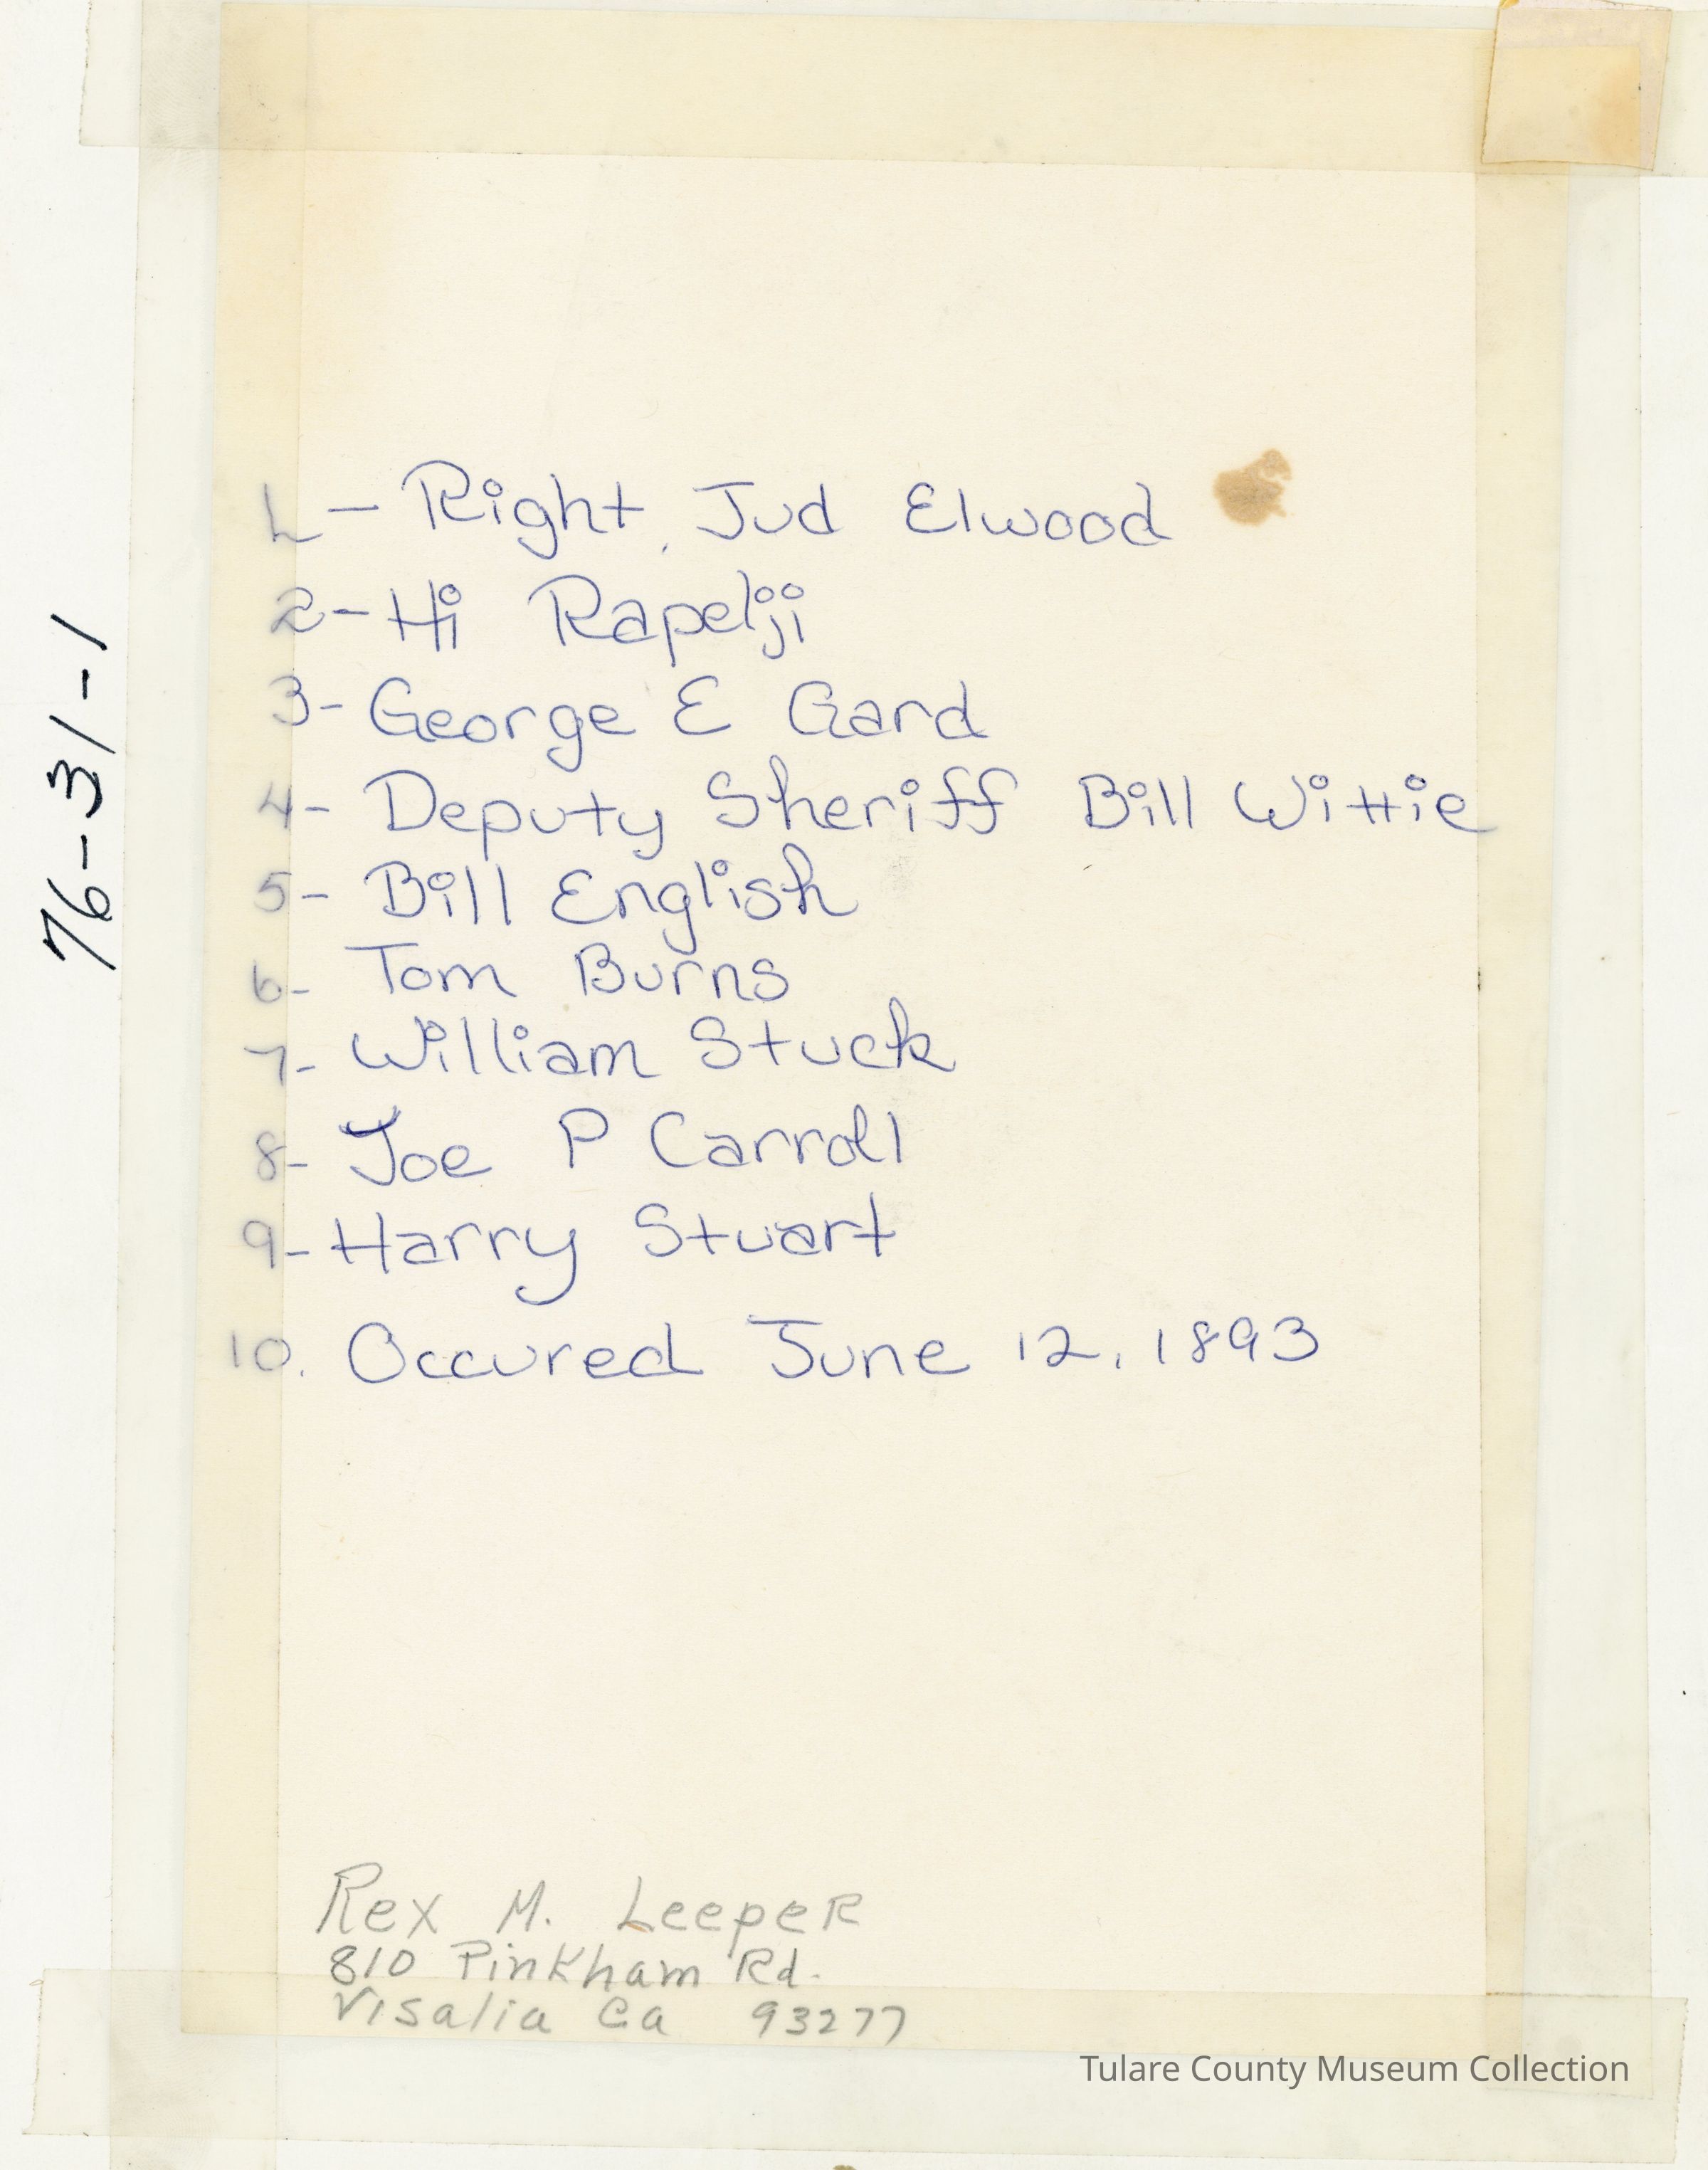 76-31-1
1- Right, Jud Elwood
2- Hi Rapelji
3- George E Gard
4- Deputy Sheriff Bill Wittie
5- Bill English
6- Tom Burns
7- William Stuck
8- Joe P Carroll
9- Harry Stuart
10. Occured June 12, 1893
Rex M. Leeper
810 Pinkham Rd.
Visalia Ca 93277
Tulare County Museum Collection